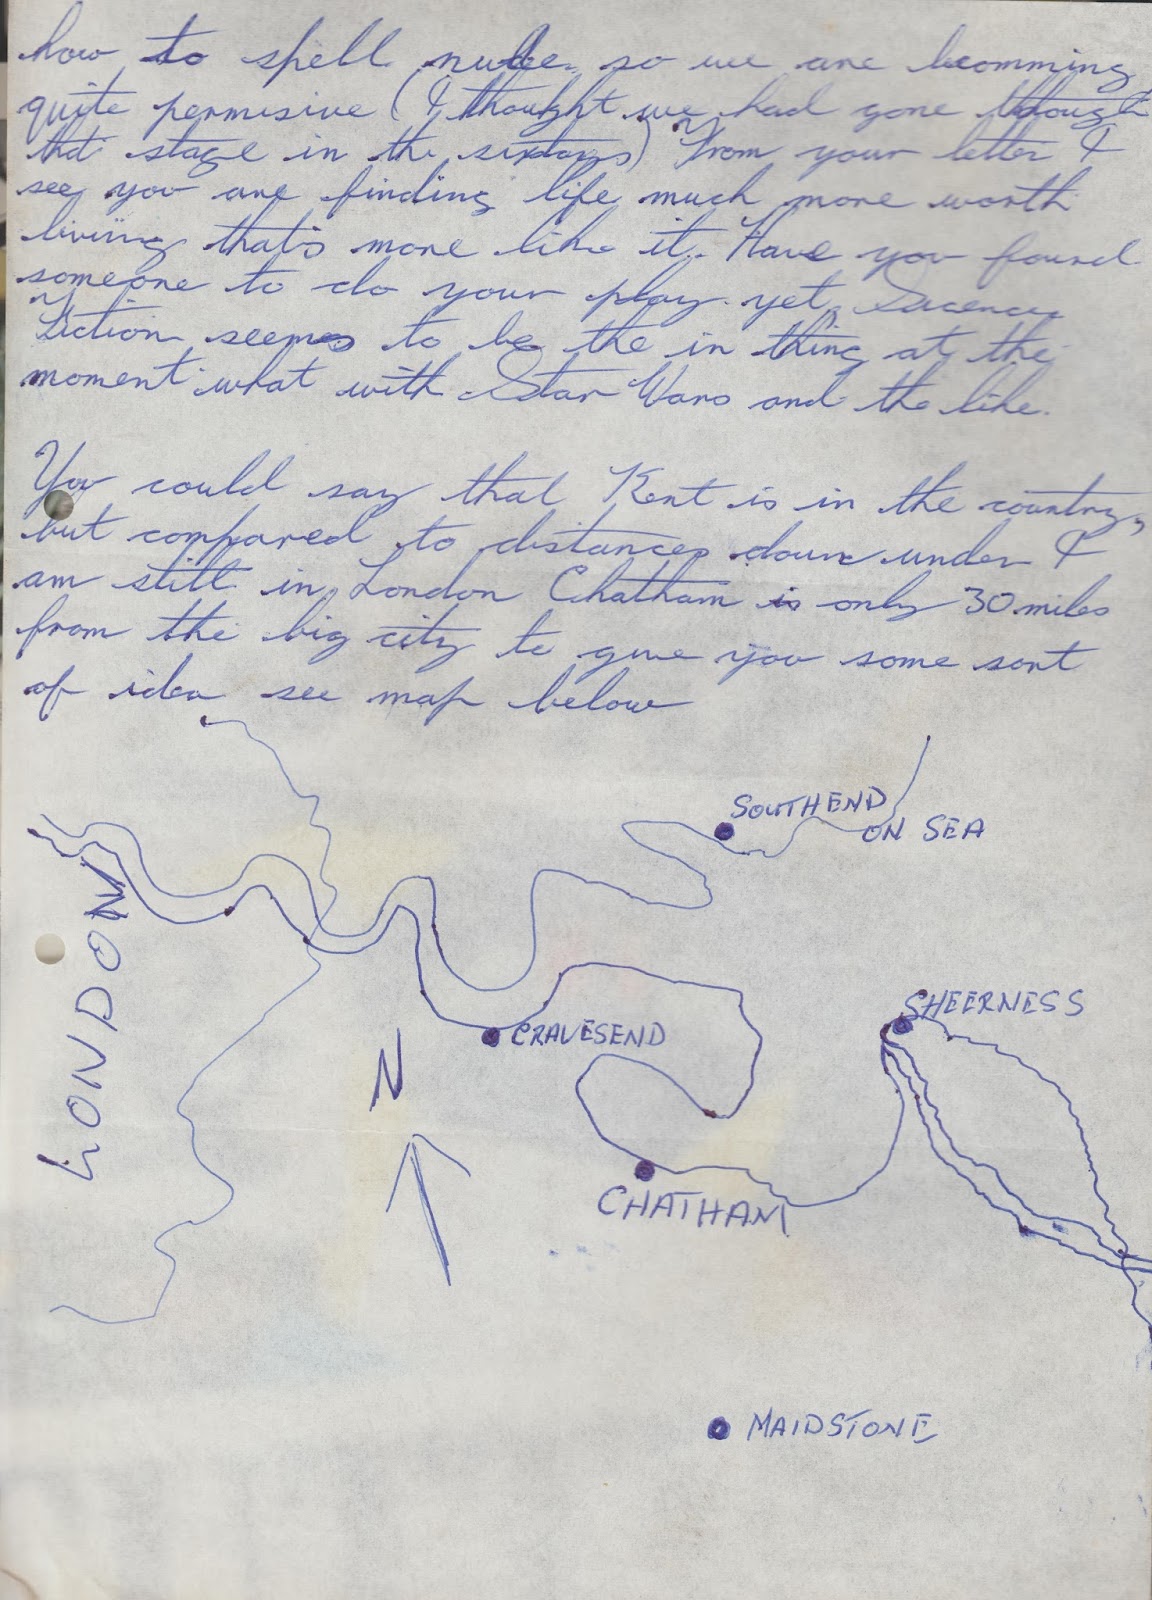 how to spell nude so we are becomming
quite permisive (I thought we had gone though
that stage in the sixtays) From your letter I
see you are finding life much more worth
living that's more like it. Have you found
someone to do your play yet, Sicence
Fiction seems to be the in thing at the
moment what with Star Wars and the like.
You could say that Kent is in the country,
but compared to distances down under I
am still in London Chatham is only 30 miles
from the big city to give you some sort
of idea see map below
SOUTHEND
ON SEA
LONDON
SHEERNESS
GRAVESEND
N
CHATHAM
MAIDSTONE